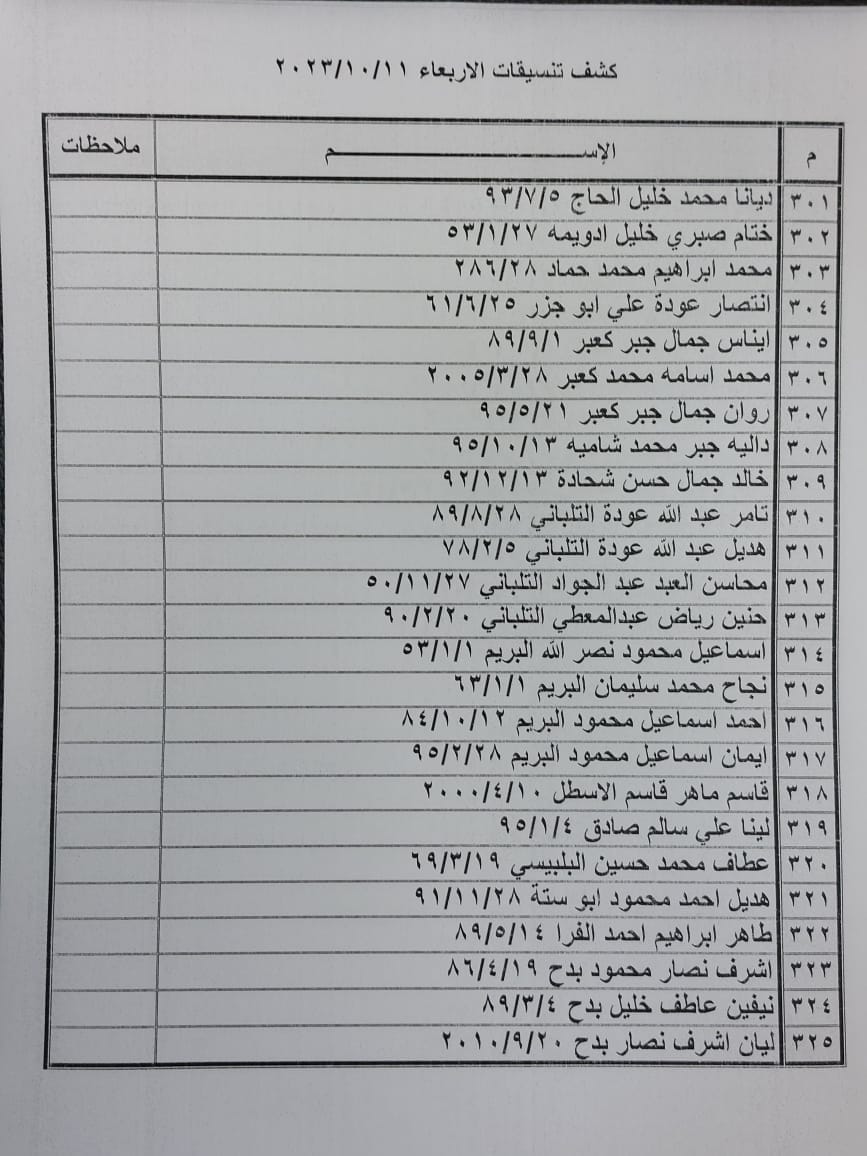 كشف تنسيقات الاربعاء ٢٠٢٣/١٠/١١
م الإســـــــــــــــم ملاحظات
٣٠١ ديانا محمد خليل الحاج ٩٣/٧/٥
٣٠٢ ختام صبري خليل ادويمه ٥٣/١/٢٧
٣٠٣ محمد ابراهيم محمد حماد ٢٨٦/٢٨
٣٠٤ انتصار عودة علي ابو جزر ٦١/٦/٢٥
٣٠٥ ايناس جمال جبر كعبر ٨٩/٩/١
٣٠٦ محمد اسامه محمد كعبر ٢٠٠٥/٣/٢٨
٣٠٧ روان جمال جبر كعبر ٩٥/٥/٢١
٣٠٨ داليه جبر محمد شاميه ٩٥/١٠/١٣
٣٠٩ خالد جمال حسن شحادة ٩٢/١٢/١٣
٣١٠ تامر عبد الله عودة التلباني ٨٩/٨/٢٨
٣١١ هديل عبد الله عودة التلباني ٧٨/٢/٥
٣١٢ محاسن العبد عبد الجواد التلباني ٥٠/١١/٢٧
٣١٣ حنين رياض عبدالمعطي التلباني ٩٠/٢/٢٠
٣١٤ اسماعيل محمود نصر الله البريم ٥٣/١/١
٣١٥ نجاح محمد سليمان البريم ٦٣/١/١
٣١٦ احمد اسماعيل محمود البريم ٨٤/١٠/١٢
٣١٧ ايمان اسماعيل محمود البريم ٩٥/٢/٢٨
٣١٨ قاسم ماهر قاسم الاسطل ٢٠٠٠/٤/١٠
٣١٩ لينا علي سالم صادق ٩٥/١/٤
٣٢٠ عطاف محمد حسين البلبيسي ٦٩/٣/١٩
٣٢١ هديل احمد محمود ابو ستة ٩١/١١/٢٨
٣٢٢ طاهر ابراهيم احمد الفرا ٨٩/٥/١٤
٣٢٣ اشرف نصار محمود بدح ٨٦/٤/١٩
٣٢٤ نيفين عاطف خليل بدح ٨٩/٣/٤
٣٢٥ ليان اشرف نصار بدح ٢٠١٠/٩/٢٠